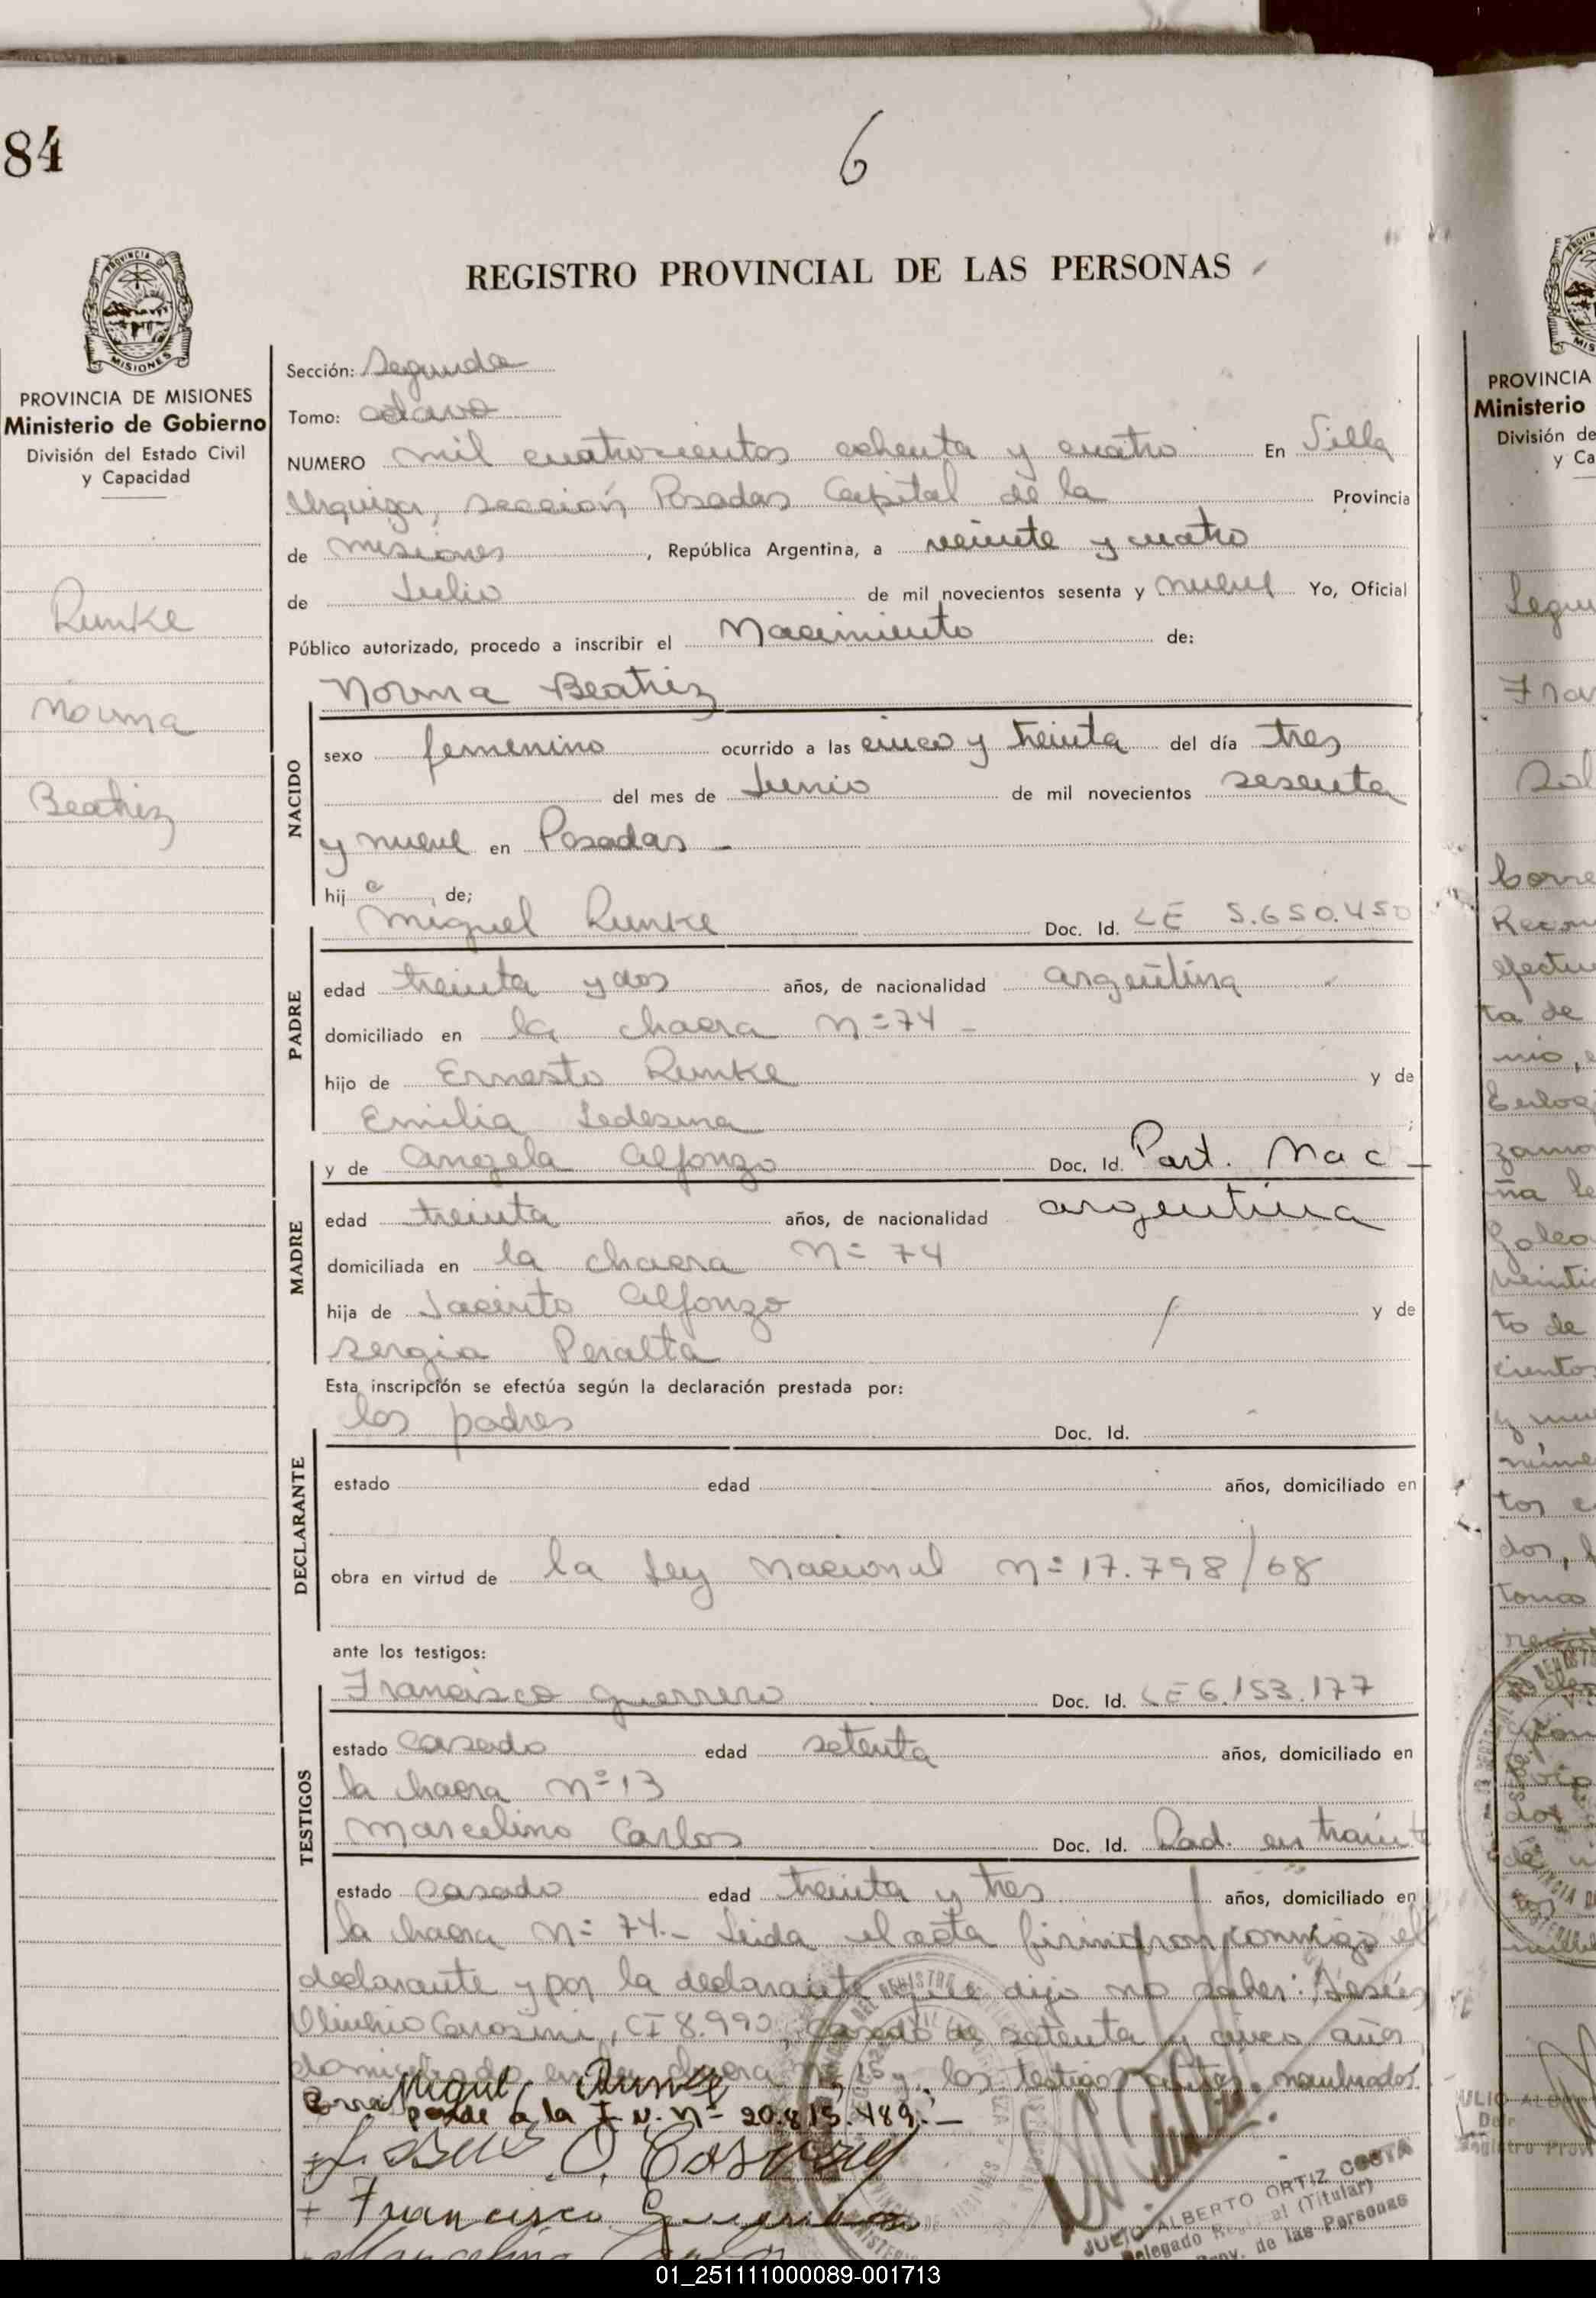 84
6
REGISTRO PROVINCIAL DE LAS PERSONAS
PROVINCIA DE MISIONES
Ministerio de Gobierno
División del Estado Civil
y Capacidad
Runke
Norma
Beatriz
Sección: Segunda
Tomo: octavo
NUMERO mil cuatrocientos ochenta y cuatro En Villa
Urquiza, sección Posadas Capital de la Provincia
de Misiones, República Argentina, a veinte y cuatro
de Julio de mil novecientos sesenta y nueve Yo, Oficial
Público autorizado, procedo a inscribir el Nacimiento de:
Norma Beatriz
NACIDO
sexo femenino ocurrido a las cinco y treinta del día tres
del mes de Junio de mil novecientos sesenta
y nueve en Posadas -
hija de;
Miguel Runke Doc. Id. LE 5.650.450
PADRE
edad treinta y dos años, de nacionalidad argentina
domiciliado en la chacra Nº 74 -
hijo de Ernesto Runke y de
Emilia Ledesma ;
y de Angela Alfonzo Doc. Id. Part. Nac -
MADRE
edad treinta años, de nacionalidad argentina
domiciliada en la chacra Nº 74
hija de Jacinto Alfonzo y de
Sergia Peralta
Esta inscripción se efectúa según la declaración prestada por:
los padres Doc. Id.
DECLARANTE
estado edad años, domiciliado en
obra en virtud de la Ley Nacional Nº 17.798/68
ante los testigos:
Francisco Guerrero Doc. Id. LE 6.153.177
TESTIGOS
estado casado edad setenta años, domiciliado en
la chacra Nº 13
Marcelino Carlos Doc. Id. Rad. en tramit
estado casado edad treinta y tres años, domiciliado en
la chacra Nº 74.- Leida el acta firmaron conmigo el
declarante y por la declarante que dijo no saber: Jesús
CI 8.990, casado de setenta y cinco años
domiciliado en la chacra Nº 15 y los testigos antes nombrados.
Miguel Runke
Corresponde a la I. N. Nº 20.815.489.-
Jesus O.
Francisco Guerrero
Marcelino Carlos
JULIO ALBERTO ORTIZ COSTA
Delegado Regional (Titular)
Prov. de las Personas
PROVINCIA
Ministerio
División de
y Ca
Segu
Fran
Corre
Recon
efectu
ta de
Eulog
to de
cientos
01_251111000089-001713